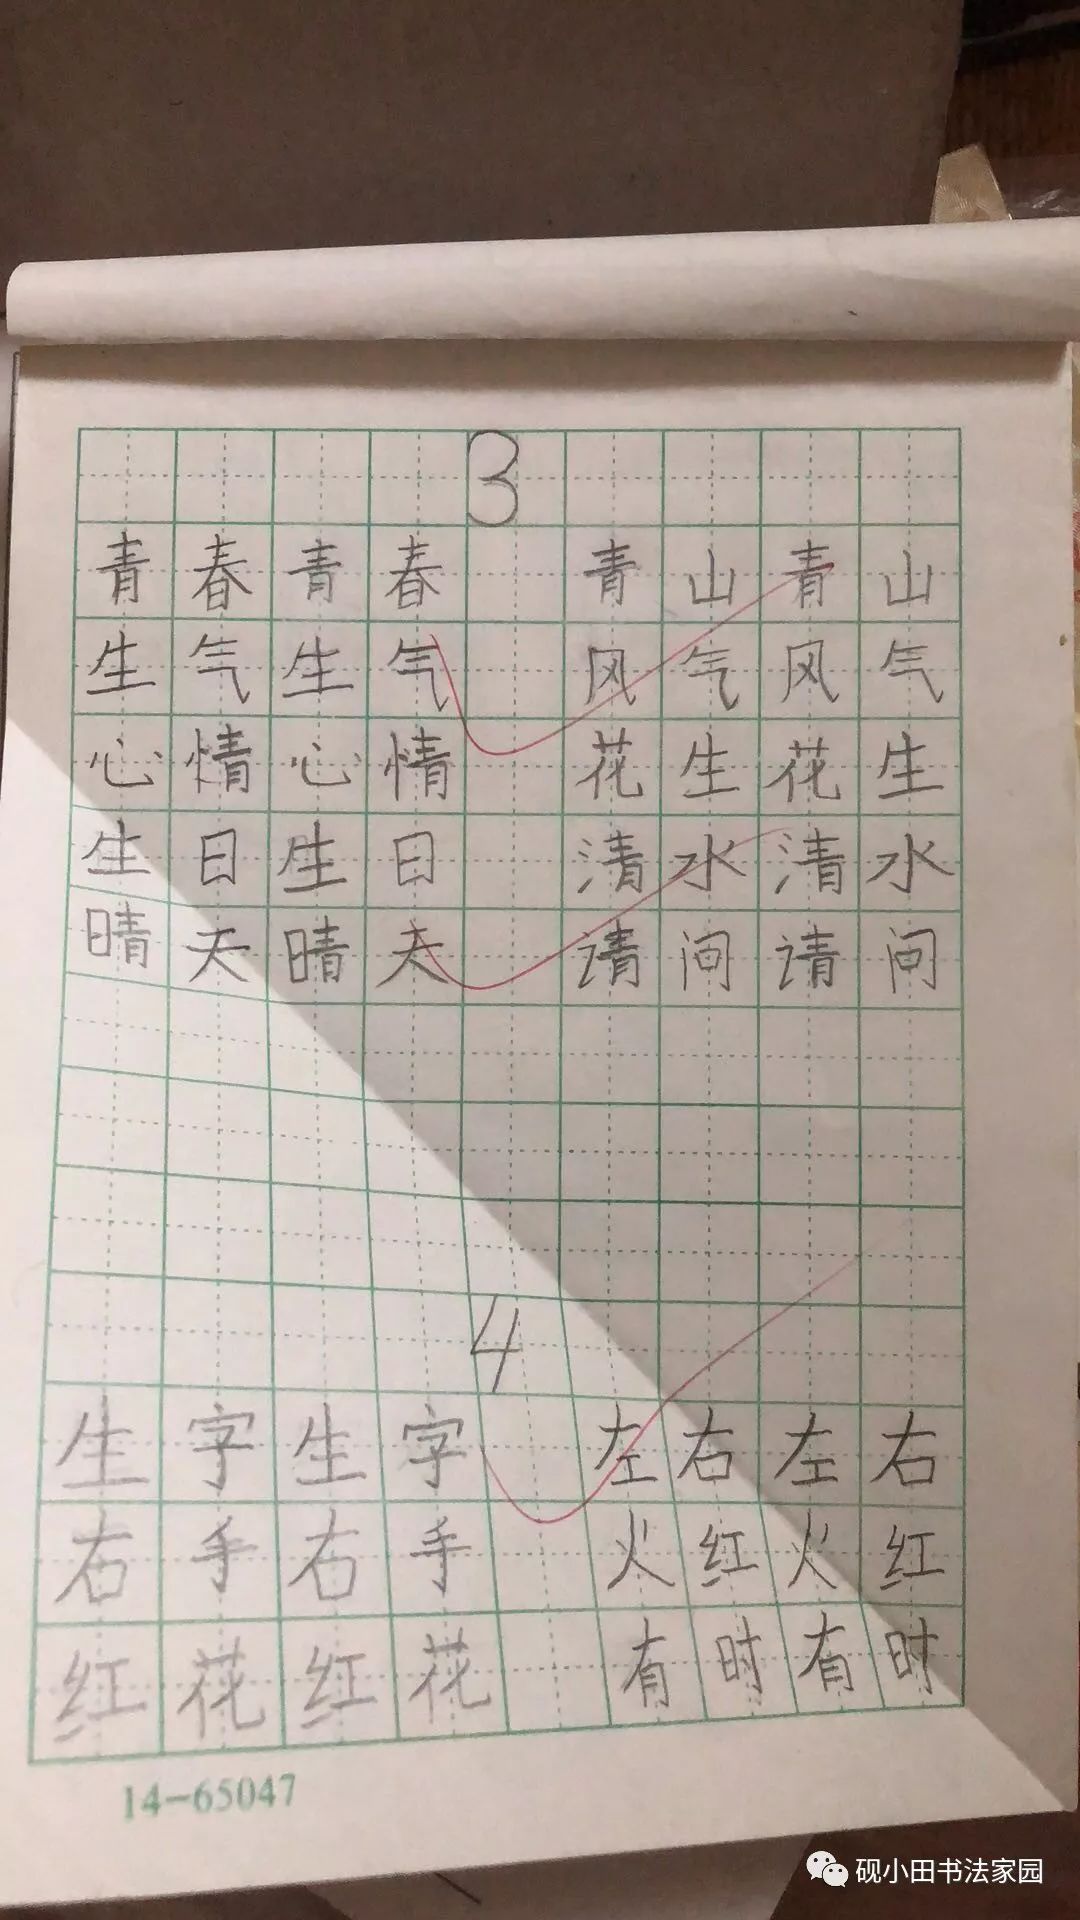 3
青春青春 青山青山
生气生气 风气风气
心情心情 花生花生
生日生日 清水清水
晴天晴天 请问请问
4
生字生字 左右左右
右手右手 火红火红
红花红花 有时有时
14-65047
砚小田书法家园